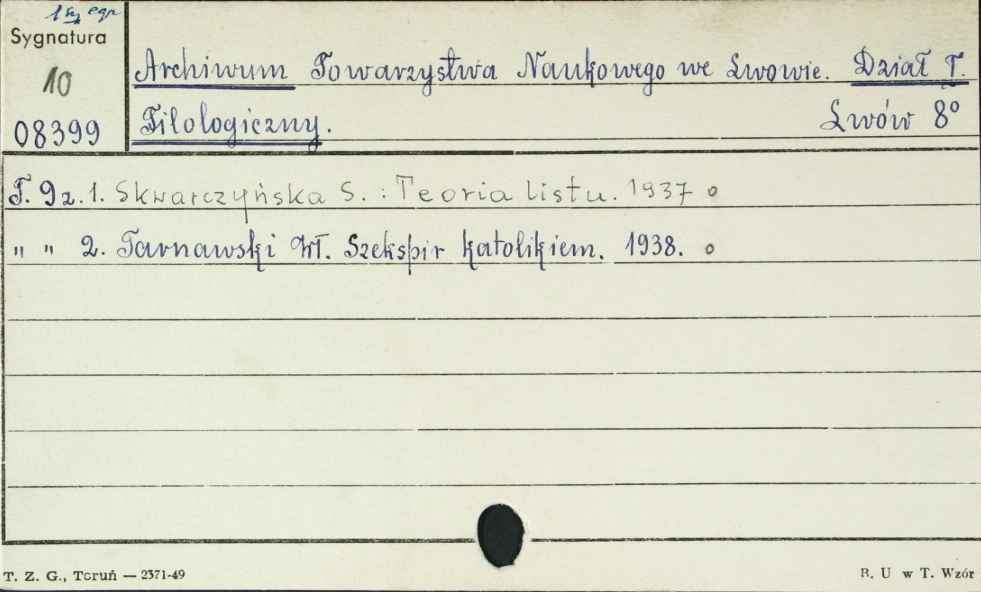 1 szy egz
Sygnatura
10
08399
Archiwum Towarzystwa Naukowego we Lwowie. Dział I.
Filologiczny. Lwów 8º
T. 9 z. 1. Skwarczyńska S. : Teoria listu. 1937 o
" " 2. Tarnawski Wł. Szekspir katolikiem. 1938. o
T. Z. G., Toruń — 2371-49
B. U w T. Wzór